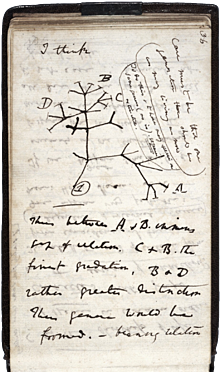 36
I think
Case must be that one
generation then should be
as many living as now
To do this & to have many species in
same genus (as is) requires
extinction.
B
D
C
A
1
Then between A & B. immens
gap of relation. C & B. the
finest gradation, B & D
rather greater distinction
Thus genera would be
formed. — bearing relation